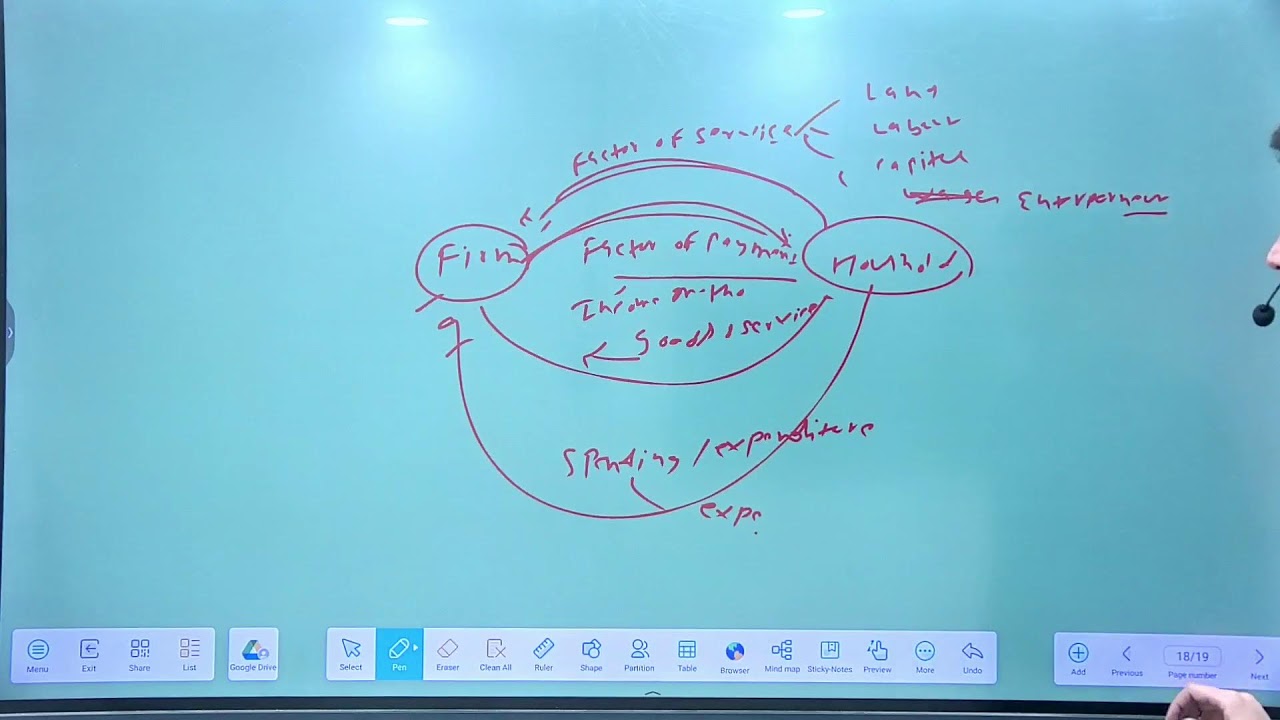 Land
Labour
Factor of service
capital
Entrperneur
Firm
Factor of Payment
Houshold
Income
Goods & service
Spending / expenditure
expe
Menu
Exit
Share
List
Google Drive
Select
Pen
Eraser
Clean All
Ruler
Shape
Partition
Table
Browser
Mind map
Sticky-Notes
Preview
More
Undo
Add
Previous
18/19
Page number
Next